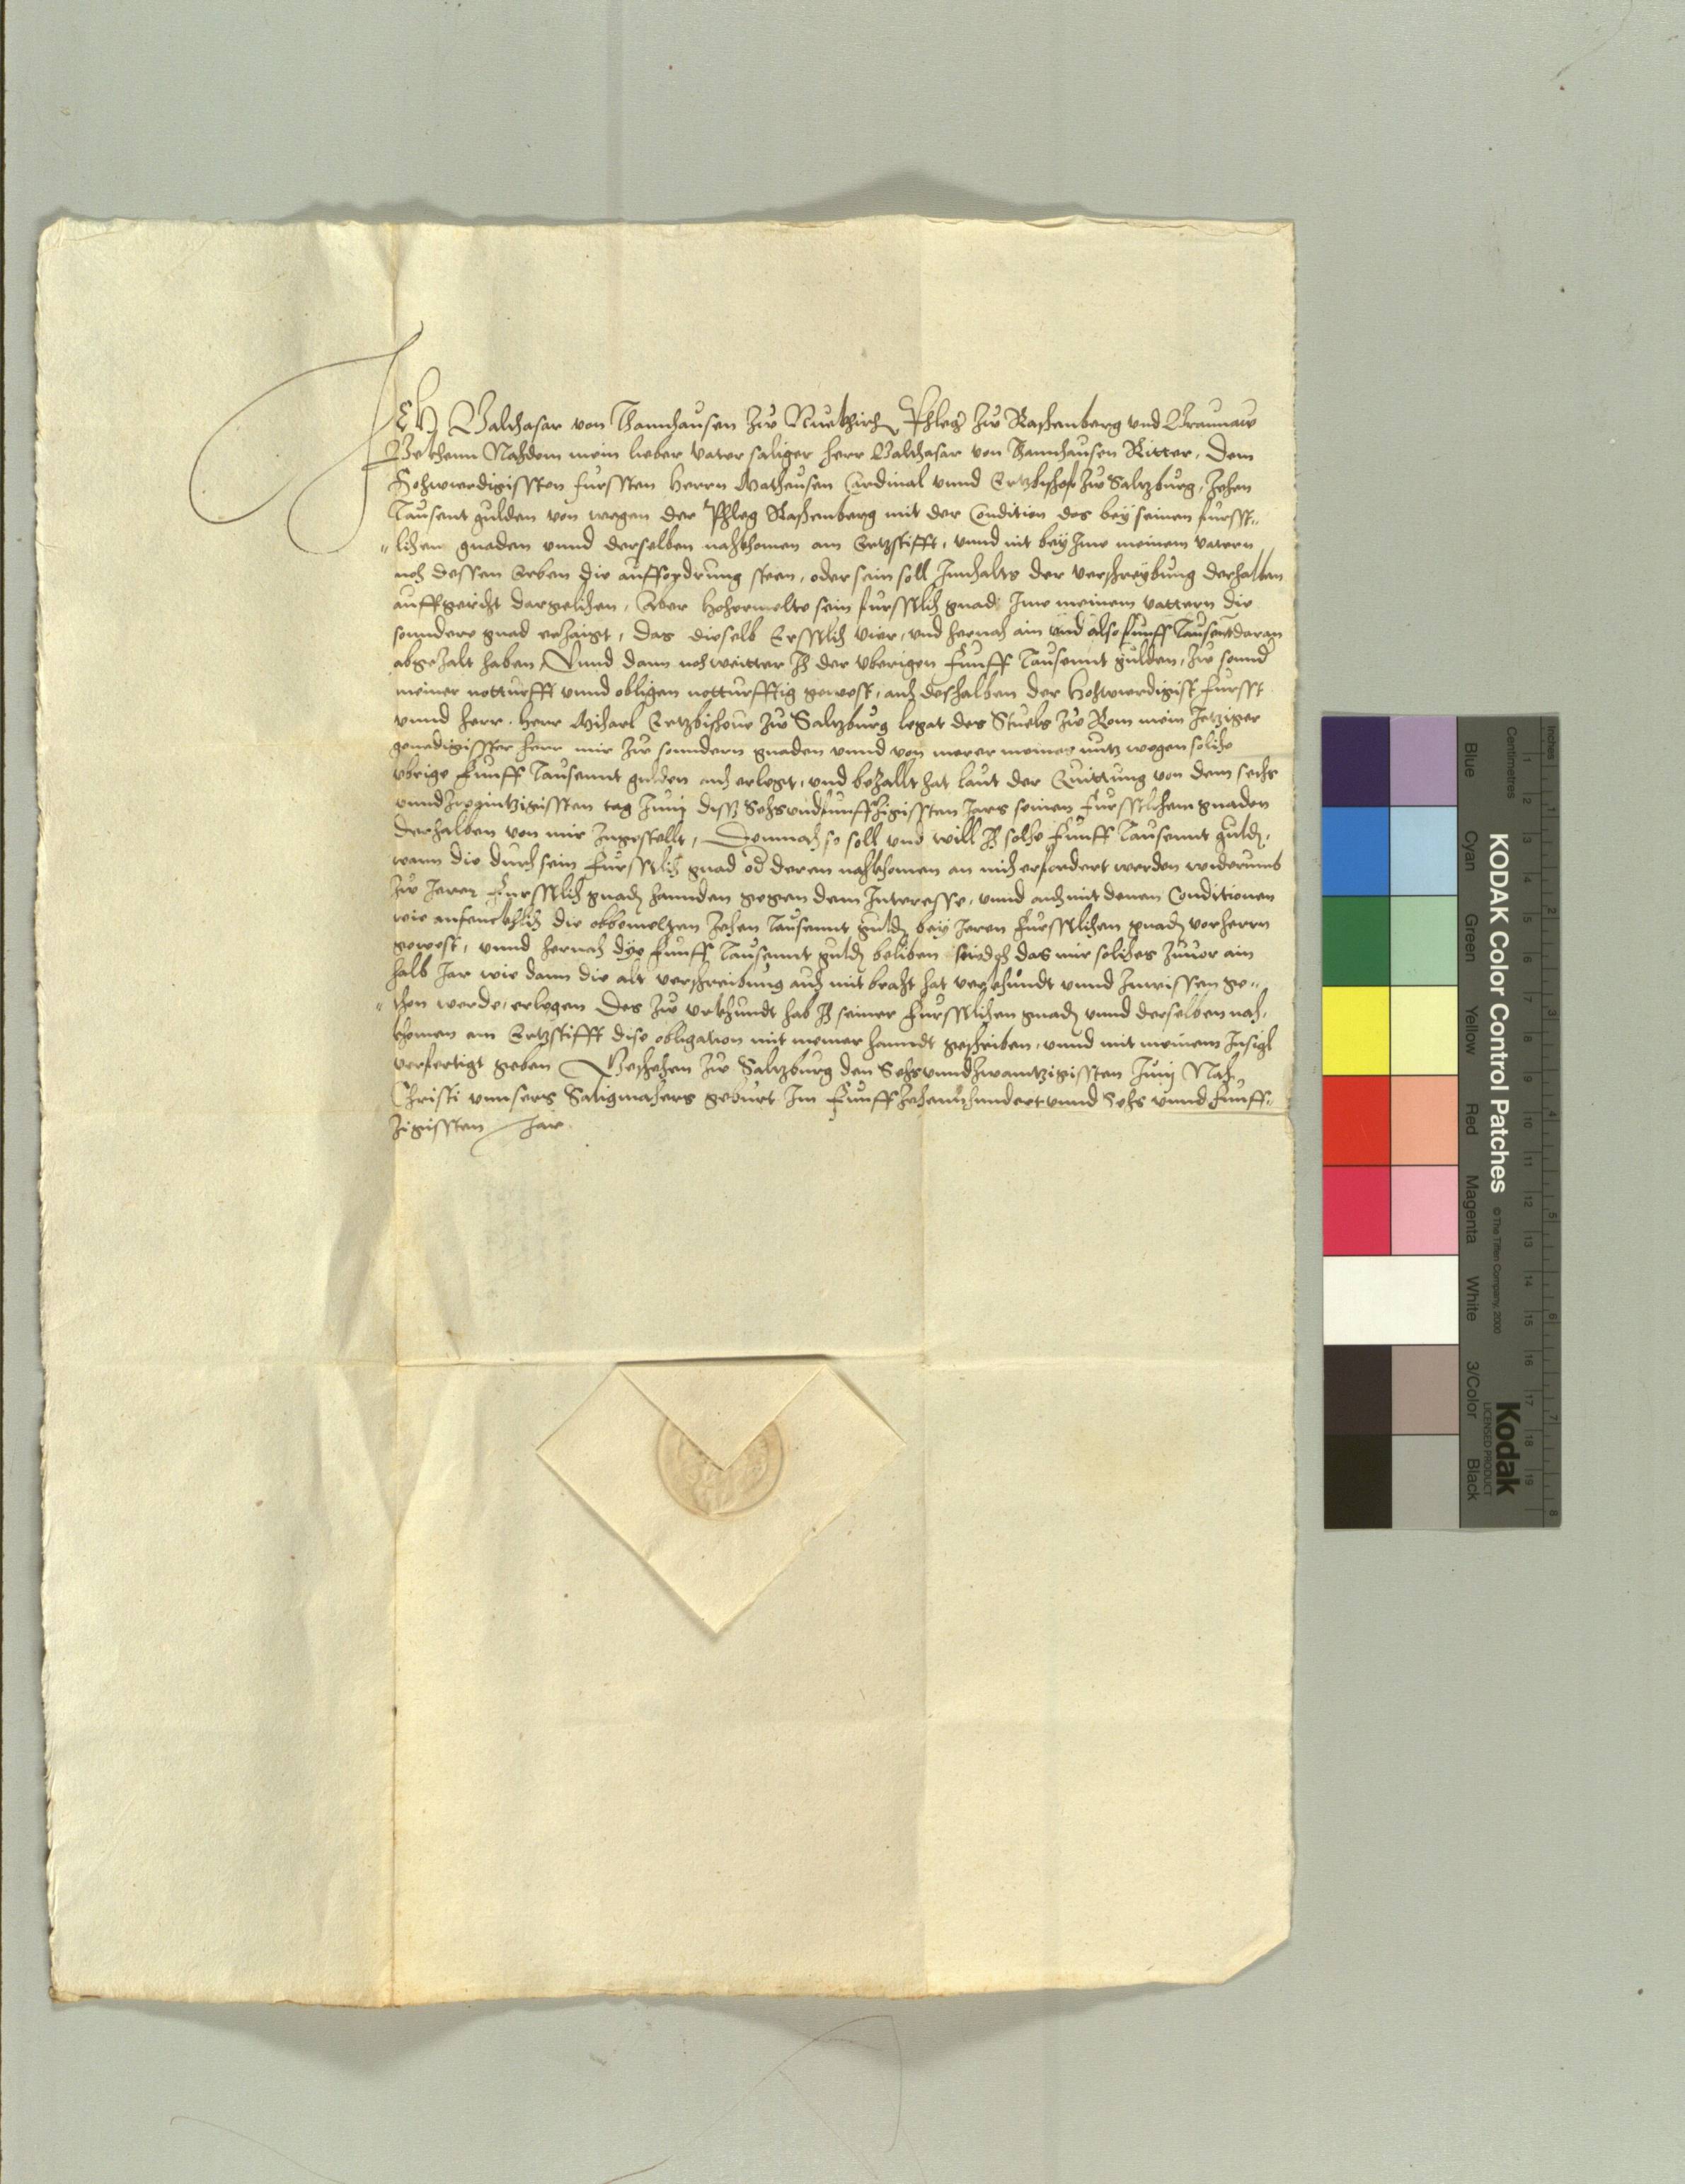 Ich Balthasar von Thannhausen zw Neukhirch Phleger zw Raschenberg und Braunaw
Bekhenn Nachdem mein lieber vater saliger herr Balthasar von Thannhausen Ritter, dem
Hochwierdigissten fürssten Herrn Matheusen Cardinal vnnd Ertzbischof zw Saltzburg, zehen
Tausent gulden von wegen der Phleg Raschenberg mit der Condition das bey seinen fürsst-
lichen gnaden vnnd derselben nachkhomen am Ertzstifft, vnnd nit bey Ime meinem vatern
noch dessen Erben die auffordrung steen, oder sein soll Innhalts der verschreybung derhalben
auffgericht dargelichen, Aber hochermelte sein fürsstlich gnad Ime meinem vattern die
sonndere gnad erzaigt, das dieselb Ersstlich vier, vnd hernach ain vnd also funff Tausent daran
abgezalt haben, Vnnd dann noch weitter Ich der vberigen Funff Tausennt gulden, zw sonnd
meiner notturfft vnnd obligen notturfftig gewest, auch deshalben der Hochwierdigist Fürsst
vnnd herr, herr Michael Ertzbischoue zw Saltzburg legat des Stuels zw Rom mein Jetziger
genedigisster herr mir zw sonndern gnaden vnnd von merer meines nutz wegen soliche
vbrige Funff Tausennt gulden auch erlegt, vnd bezallt hat laut der Quittung von dem sechs
vnndzwaintzigissten tag Junij diss Sechsvndfunfftzigissten Jars seinen Fürsstlichen gnaden
derhalben von mir zugestellt, Demnach so soll vnd will Ich solche Funff Tausennt guldn,
wann die durch sein Fürsstlich gnad od deren nachkhomen an mich erfordert werden widerumb
zw Jeren Fürsstlich gnaden hannden gegen dem Interesse, vnnd auch mit denen Conditionen
wie anfenckhlich die obbemelten zehen Tausennt guldn bey Jeren Fürsstlichen gnaden vorherrn
gewest, vnnd hernach dye Funff Tausennt guldn beliben seiedoch das mir soliches zuuor ain
halb Jar wie dann die alt verschreibung auch mit bracht hat verkhundt vnnd zuwissen ge-
than werde, erlegen Des zw vrkhundt hab Ich seiner Fürsstlichen gnaden vnnd derselben nach-
khomen am Ertzstifft dise obligation mit meiner hanndt geschriben, vnnd mit meinem Insigl
verfertigt geben Beschehen zw Saltzburg den Sechsvnndzwaintzigissten Junij Nach
Christi vnnsers Saligmachers geburt Im Funffzehennhundert vnnd Sechs vnnd funff-
zigissten Jar
KODAK Color Control Patches
©The Tiffen Company, 2000
Kodak
LICENSED PRODUCT
Inches
Centimetres
Blue Cyan Green Yellow Red Magenta White 3/Color Black
1 2 3 4 5 6 7 8
1 2 3 4 5 6 7 8 9 10 11 12 13 14 15 16 17 18 19